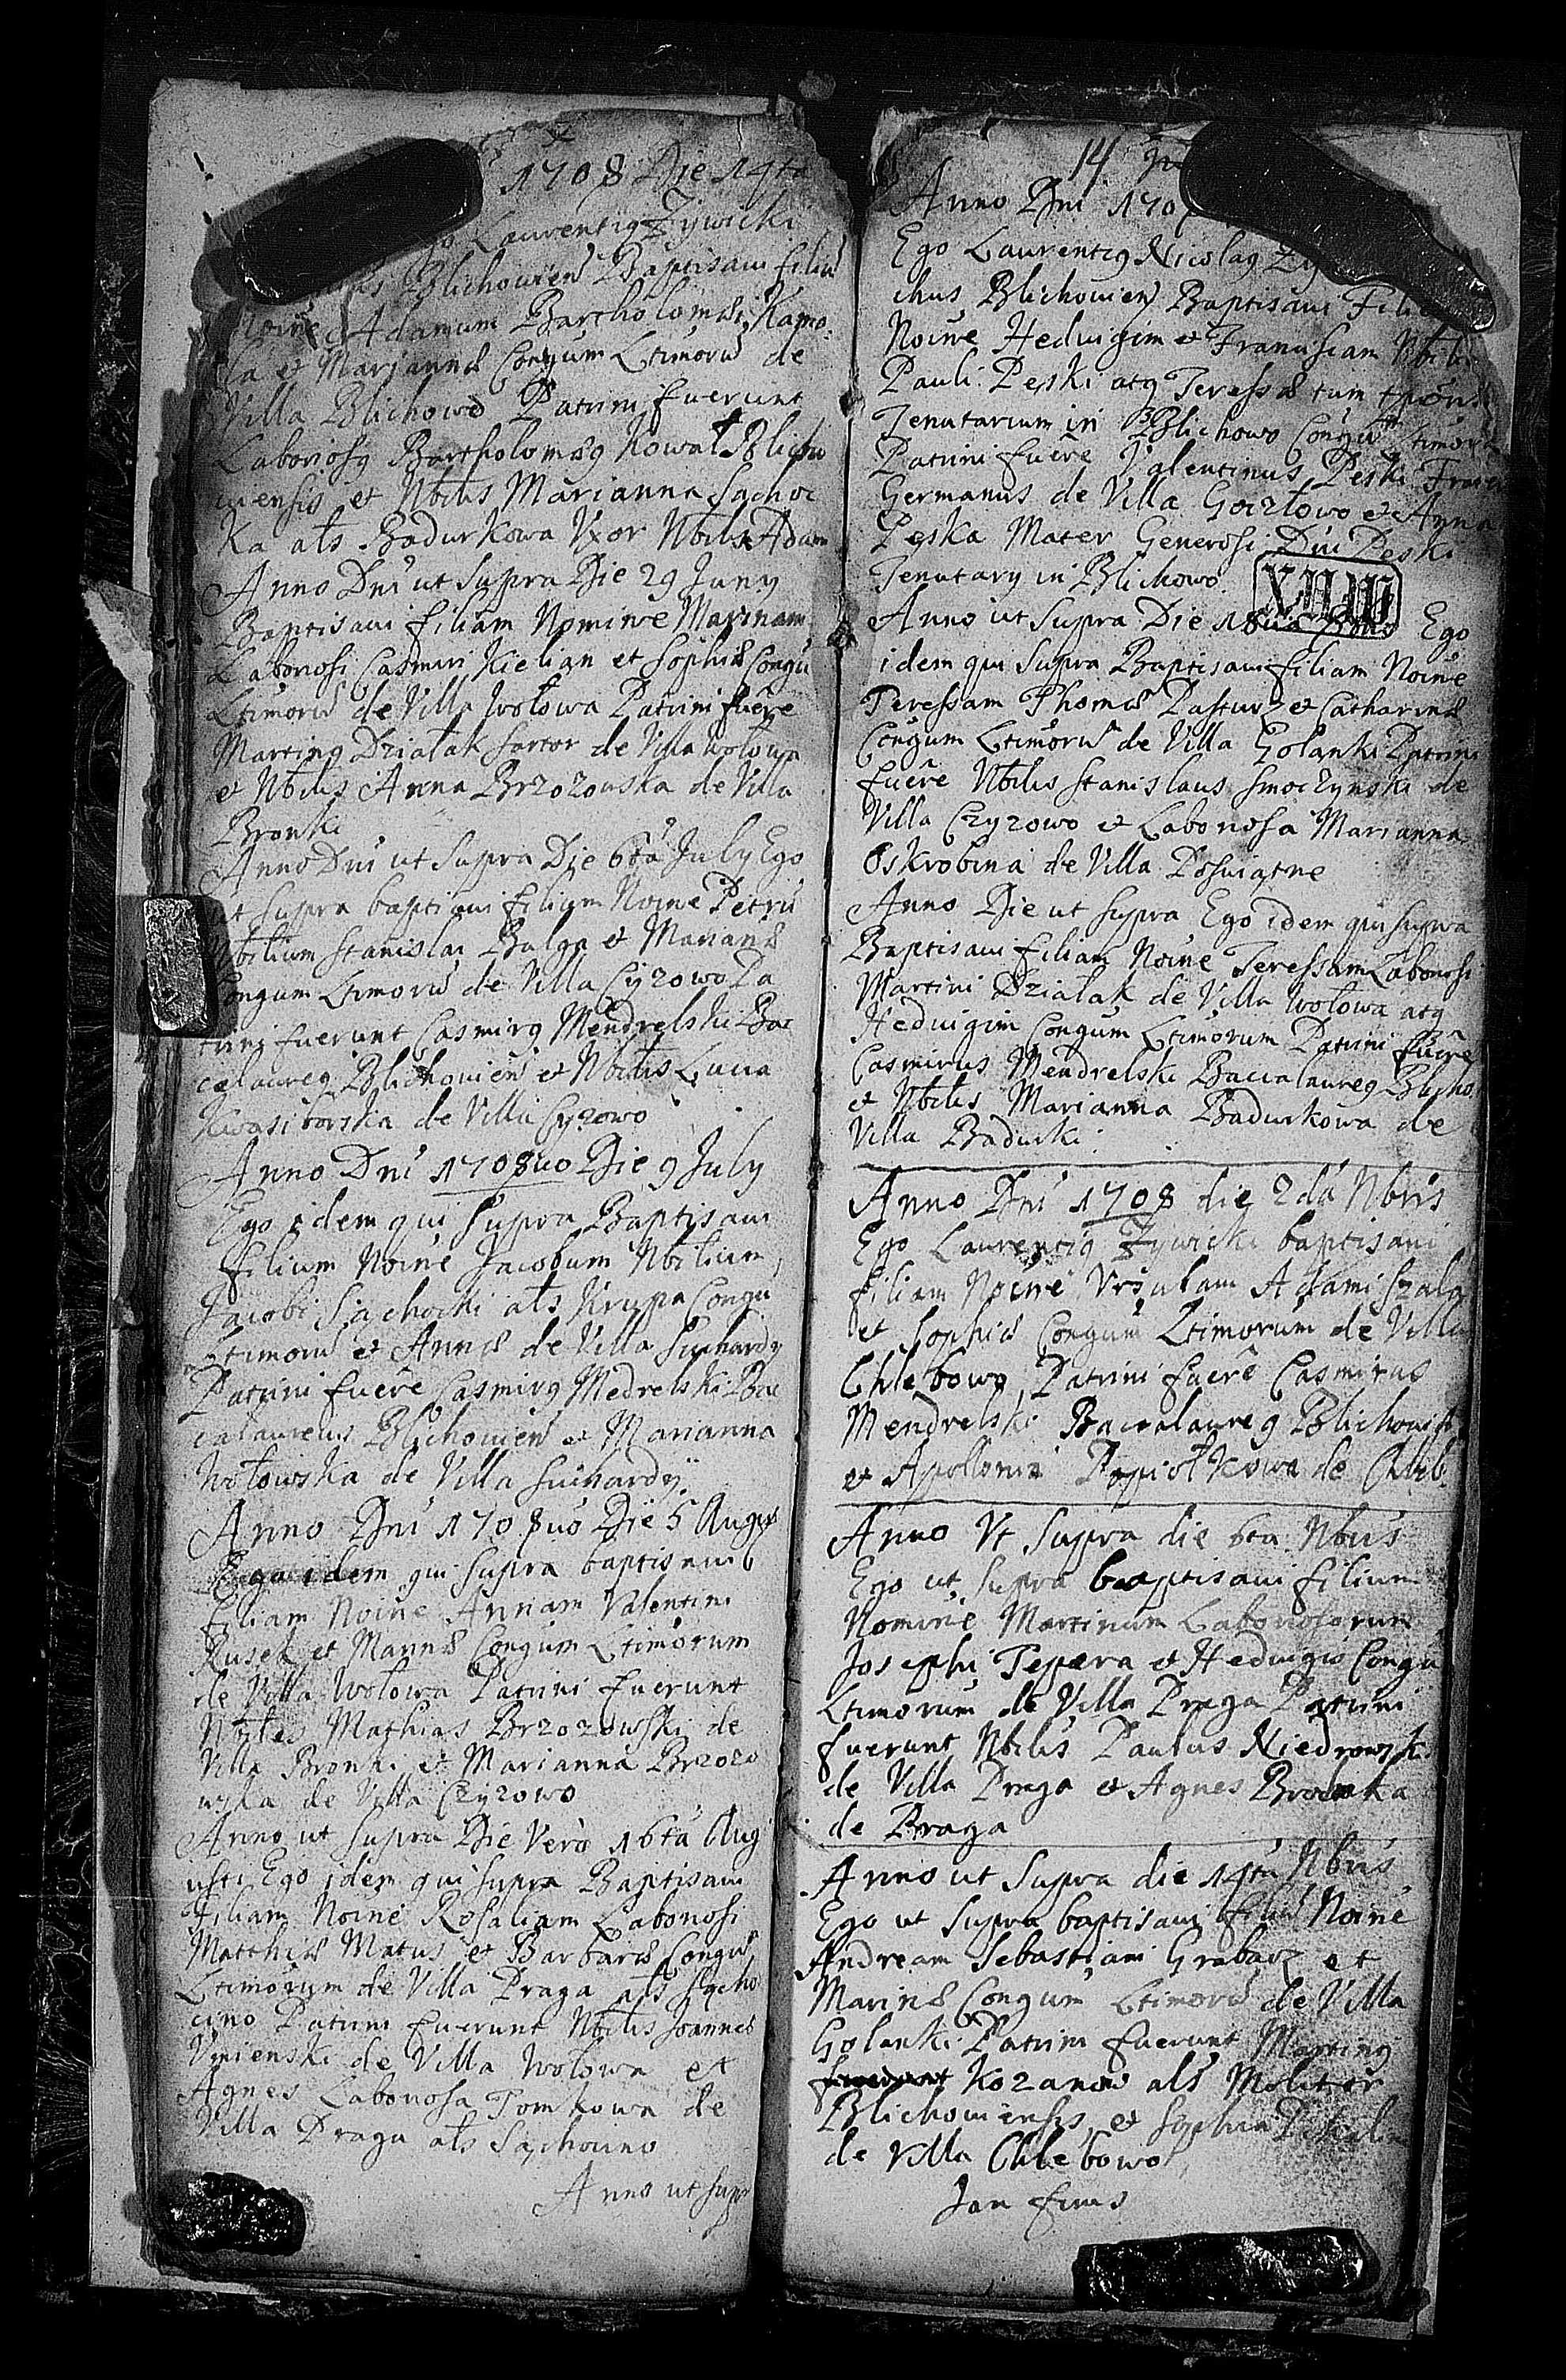 1708 Die 14ta
Laurentig Zywicki
Blichovien Baptisavi filiu
Noine Adamum Bartholomæi Kamo
la et Mariannæ Congum Ltimoru de
Villa Blichowo Patrini fuerunt
Laboriosg Bartholomæg Kowal Blicho
viensis et Nbilis Marianna Sachoc
Ka als Badurkowa Uxor Nbilis Adam
Anno Dni ut Supra Die 29 Juny
Baptisavi filiam Nomine Marinam
Laboriosi Casmiri Kielian et Sophiæ Congu
Ltimoru de Villa Wołowa Patrini fuere
Marting Działak Sartor de Villa Wołowa
et Nbilis Anna Brzozowska de Villa
Bronki
Anno Dni ut Supra Die 6ta July Ego
ut supra baptisavi filium Noine Petru
Nbilium Stanislai Balga et Marianæ
Congum Ltimoru de Villa Cyzowo Pa
trini fuerunt Casmirg Mendrelski Bac
calaureg Blichovien et Nbilis Lucia
Kwasiborska de Villa Cyzowo
Anno Dni 1708uo Die 9 July
Ego idem qui supra Baptisavi
filium Noine Jacobum Nbilium
Jacobi Sachocki als Krupa Congu
Ltimoru et Annæ de Villa Suchardy
Patrini fuere Casmirg Medrelski Bac
calaureus Blichovien et Marianna
Wołowska de Villa Suchardy
Anno Dni 1708uo Die 5 Augus
Ego idem qui supra baptisavi
filiam Noine Annam Valentini
Rusek et Marinæ Congum Ltimorum
de Villa Wołowa Patrini fuerunt
Nbiles Mathias Brzozowski de
Villa Bronki et Marianna Brzozo
wska de Villa Czyzowo
Anno ut supra Die Vero 16ta Aug
usti Ego idem qui supra Baptisavi
Filiam Noine Rosaliam Laboriosi
Matthiæ Matus et Barbaræ Congu
Ltimorum de Villa Praga als Sacho
cino Patrini fuerunt Nbilis Joannes
Vinienski de Villa Wolowa et
Agnes Laboriosa Tomkowa de
Villa Praga als Sachocino
Anno ut supr
14
Anno Dni 170
Ego Laurentig Nicolag
chus Blichovien Baptisavi Fili
Noine Hedvigim et Franciscam Nbiliu
Pauli Peski atg Teressæ tum
Tenutarium in Blichowo Congu Ltimoru
Patrini fuere Valentinus Peski Frater
Germanus de Villa Goczłowo et Anna
Peska Mater Generosi Dni Peski
Tenutary in Blichowo
Anno ut Supra Die 18va Ego
idem qui Supra Baptisavi filiam Noine
Teressam Thomæ Pastusz et Catharinæ
Congum Ltimoru de Villa Golanki Patrini
fuere Nbilis Stanislaus Smoczynski de
Villa Czyzowo et Laboriosa Marianna
Oskrobina de Villa Posviatne
Anno Die ut supra Ego idem qui supra
Baptisavi filiam Noine Teressam Laboriosi
Martini Działak de Villa Wołowa atg
Hedvigim Congum Ltimorum Patrini fuere
Casmirus Mendrelski Baccalaureg Blicho
et Nbilis Marianna Badurkowa de
Villa Badurki
Anno Dni 1708 die 2da Nbris
Ego Laurentig Zywicki baptisavi
filiam Noine Ursulam Adami Szala
et Sophiæ Congum Ltimorum de Villa
Chlebowo Patrini fuere Casmirus
Mendrelski Baccalaureg Blichovien
et Apollonia Popiołkowa de Chleb
Anno Ut Supra die 6ta Nbris
Ego ut supra baptisavi filium
Nomine Martinum Laboriosorum
Josephi Tepera et Hedvigis Congu
Ltimorum de Villa Praga Patrini
fuerunt Nbilis Paulus Niedrowski
de Villa Praga et Agnes Brodaka
de Praga
Anno ut Supra die 14ta Nbris
Ego ut supra baptisavi filiu Noine
Andream Sebastiani Grabarz et
Marinæ Congum Ltimoru de Villa
Golanki Patrini fuerunt Marting
Kozanow als Molitor
Blichoviensis et Sophia
de Villa Chlebowo